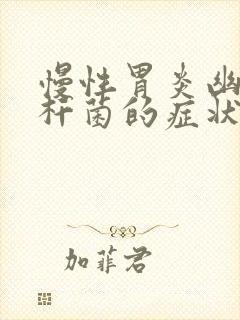 慢性胃炎幽
杆菌的症状
加菲君